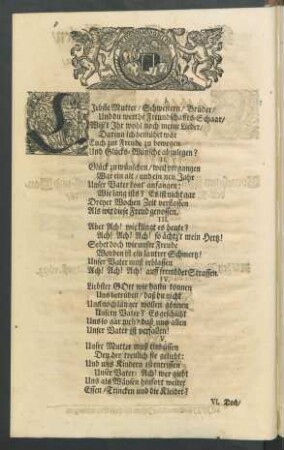 Jebste Mutter/ Schwestern/ Brüder/
Und du werthe Freundschaffts-Schaar/
Wißt Ihr wohl noch meine Lieder/
Darinn ich bemühet war
Euch zur Freude zu bewegen
Und Glücks-Wünsche abzulegen?
II.
Glück zu wünschen/ weil vergangen
War ein alt/ und ein neu Jahr
Unser Vater angefangen:
Wie lang ists? Es ist nicht gar
Dreyer Wochen Zeit verflossen
Als wir diese Freud genossen.
III.
Aber Ach! wie klingt es heute?
Ach! Ach! Ach! so ächtzt mein Hertz!
Sehet doch wie unser Freude
Worden ist ein lautrer Schmertz!
Unser Vater muß erblassen
Ach! Ach! Ach! auff frembder Strassen.
IV.
Liebster GOtt wie hastu können
Uns betrüben/ daß du nicht
Uns noch länger wollen gönnen
Unsern Vater? Es geschicht
Uns so gar weh/ daß uns allen
Unser Vater ist verfallen!
V.
Unser Mutter muß einbüssen
Den/ der treulich sie geliebt:
Und uns Kindern ist entrissen
Unser Vater: Ach! wer giebt
Uns als Wäysen hinfort weiter
Essen/ Trincken und die Kleider?
VI. Doch/